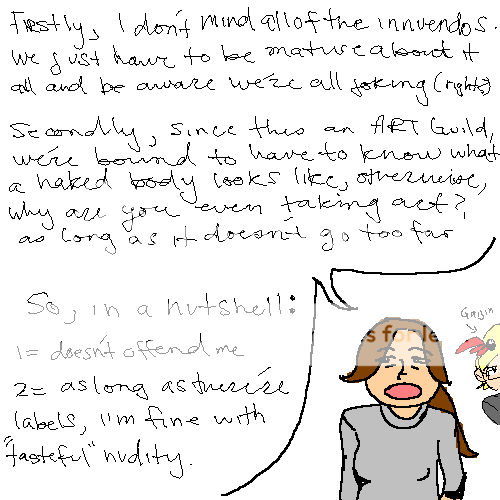 Firstly, I don't mind all of the innuendos.
We just have to be mature about it
all and be aware we're all joking (right?)
Secondly, since this an ART Guild,
we're bound to have to know what
a naked body looks like, otherwise,
why are you even taking art?,
as long as it doesn't go too far
So, in a nutshell:
1= doesn't offend me
2= as long as there're
labels, I'm fine with
"tasteful" nudity.
Gaijin
s for le